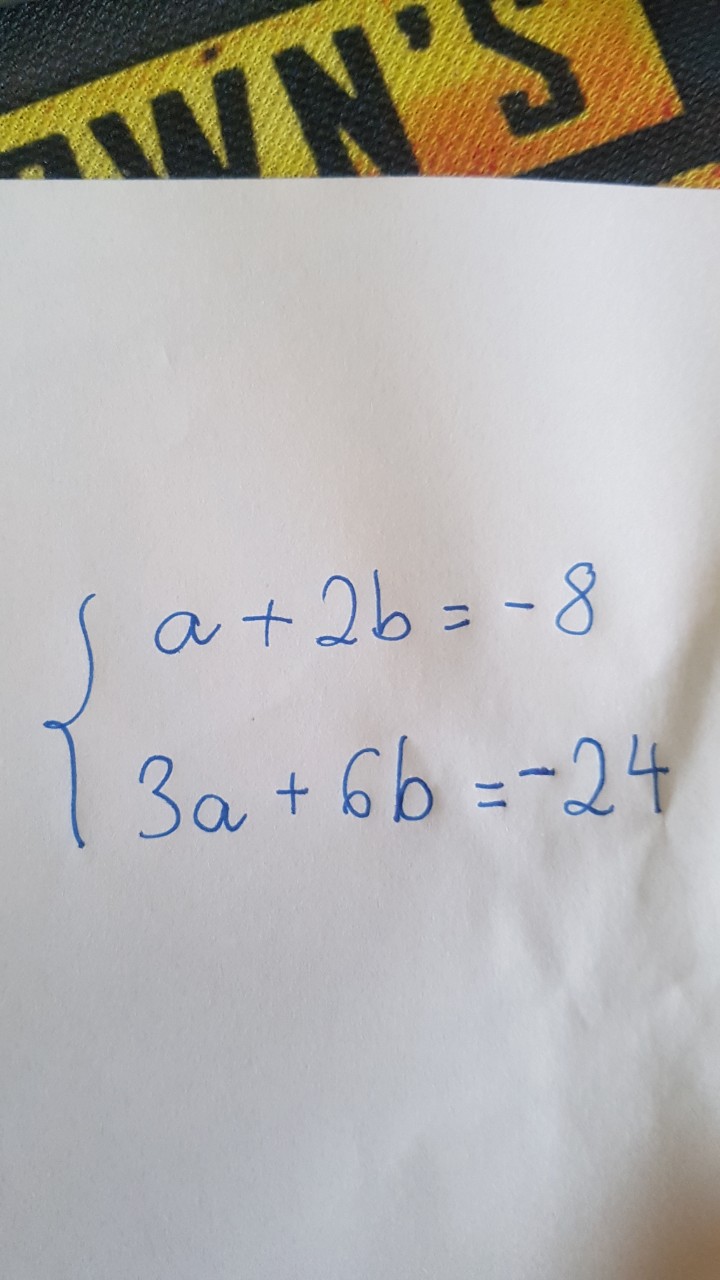 OWN'S
a + 2b = - 8
3a + 6b = - 24